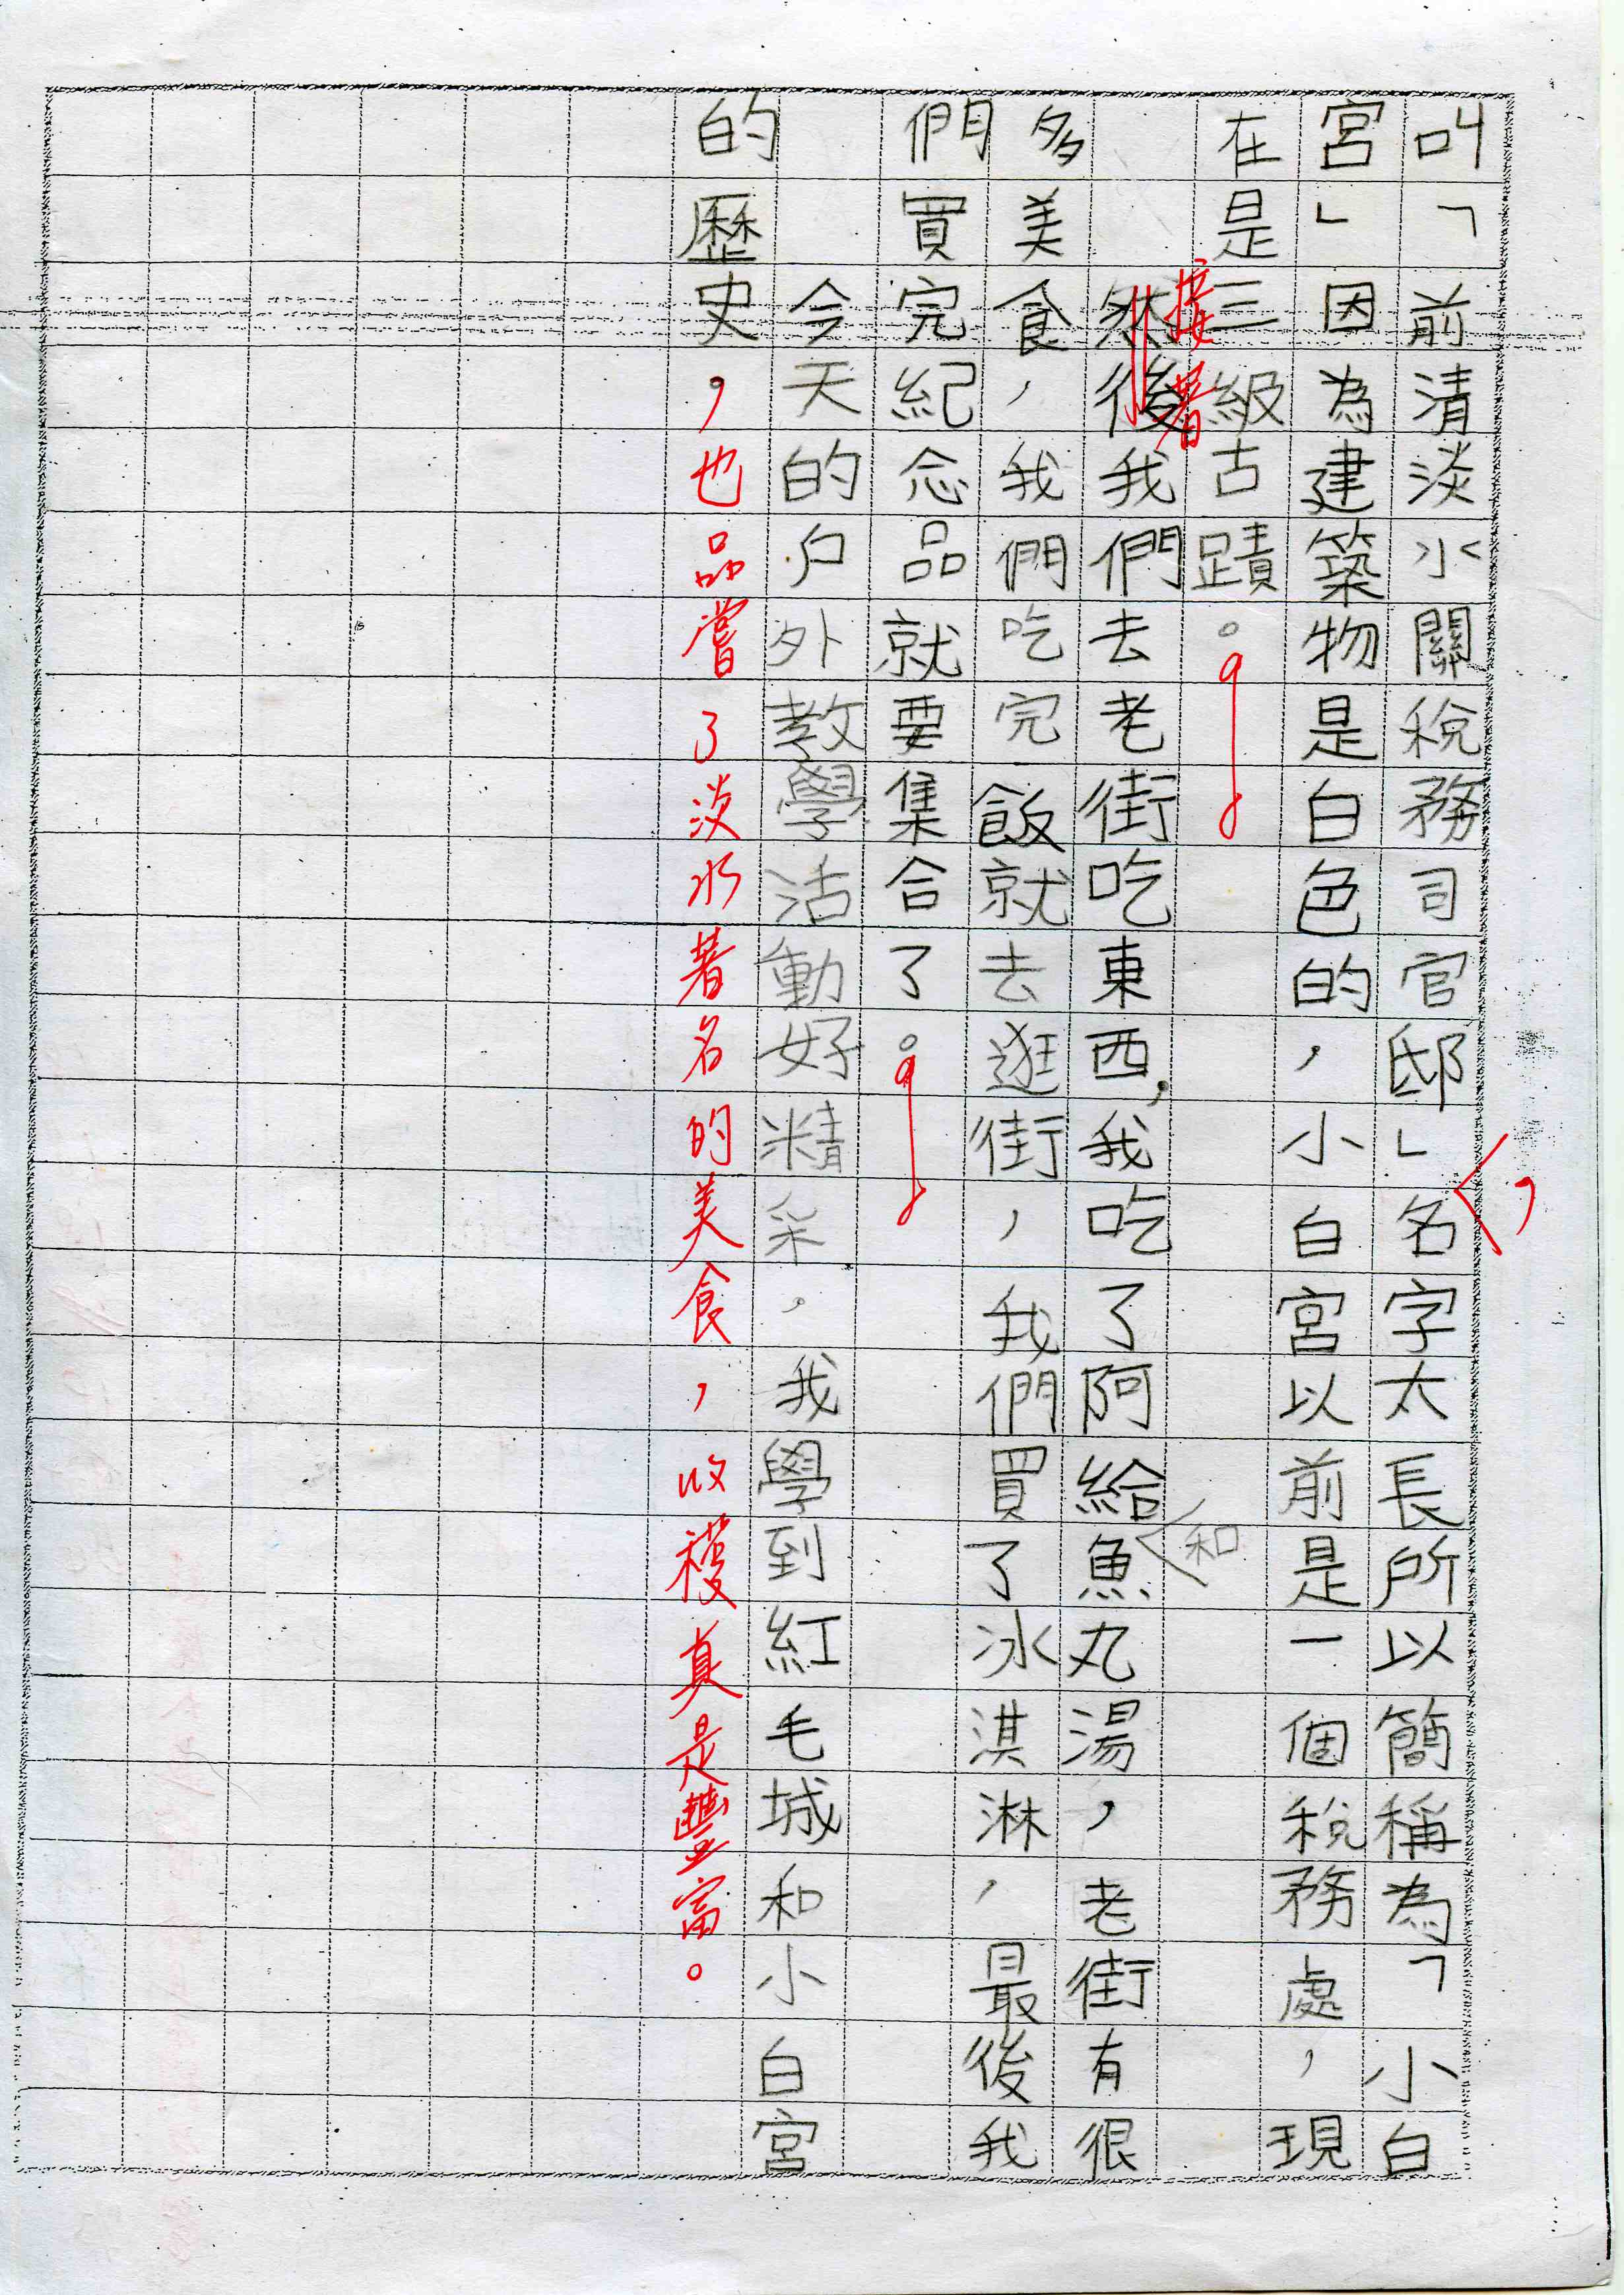 叫「前清淡水關稅務司官邸」名字太長所以簡稱為「小白
，
宮」因為建築物是白色的，小白宮以前是一個稅務處，現
在是三級古蹟。
接著
然後我們去老街吃東西，我吃了阿給魚丸湯，老街有很
和
多美食，我們吃完飯就去逛街，我們買了冰淇淋，最後我
們買完紀念品就要集合了。
今天的戶外教學活動好精采，我學到紅毛城和小白宮
的歷史，也品嘗了淡水著名的美食，收穫真是豐富。